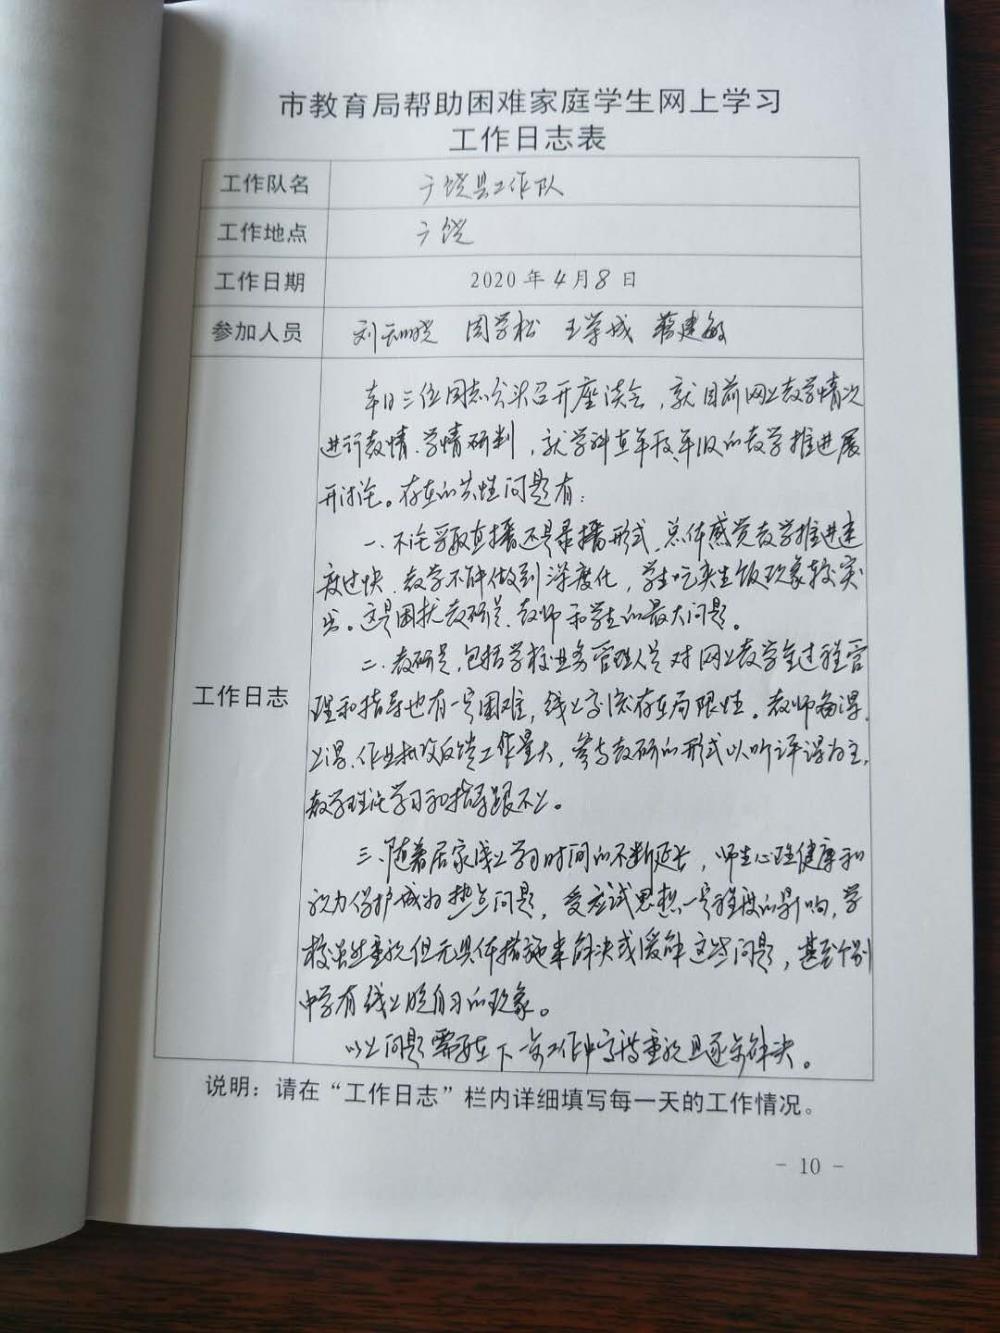 市教育局帮助困难家庭学生网上学习
工作日志表
工作队名 广饶县工作队
工作地点 广饶
工作日期 2020年4月8日
参加人员 刘云晓 周学松 王学成 蒋建敏
工作日志
本日三位同志分头召开座谈会，就目前网上教学情况
进行教情、学情研判，就学科在年段、年级的教学推进展
开讨论。存在的共性问题有：
一、不论采取直播还是录播形式，总体感觉教学推进速
度过快，教学不能做到深度化，学生吃夹生饭现象较突
出。这是困扰教研员、教师和学生的最大问题。
二、教研员，包括学校业务管理人员对网上教学全过程管
理和指导也有一定困难，线上交流存在局限性。教师备课、
上课、作业批改反馈工作量大，参与教研的形式以听评课为主，
教学理论学习和指导跟不上。
三、随着居家线上学习时间的不断延长，师生心理健康和
视力保护成为热点问题，受应试思想一定程度的影响，学
校虽然重视但无具体措施来解决或缓解这些问题，甚至个别
中学有线上晚自习的现象。
以上问题需要在下一步工作中高度重视且逐步解决。
说明：请在“工作日志”栏内详细填写每一天的工作情况。
- 10 -